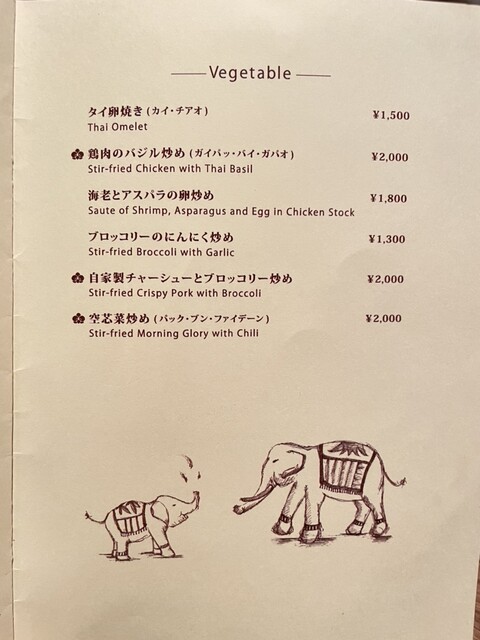 Vegetable
タイ卵焼き (カイ・チアオ) ¥1,500
Thai Omelet
鶏肉のバジル炒め (ガイパッ・バイ・ガパオ) ¥2,000
Stir-fried Chicken with Thai Basil
海老とアスパラの卵炒め ¥1,800
Saute of Shrimp, Asparagus and Egg in Chicken Stock
ブロッコリーのにんにく炒め ¥1,300
Stir-fried Broccoli with Garlic
自家製チャーシューとブロッコリー炒め ¥2,000
Stir-fried Crispy Pork with Broccoli
空芯菜炒め (パック・ブン・ファイデーン) ¥2,000
Stir-fried Morning Glory with Chili